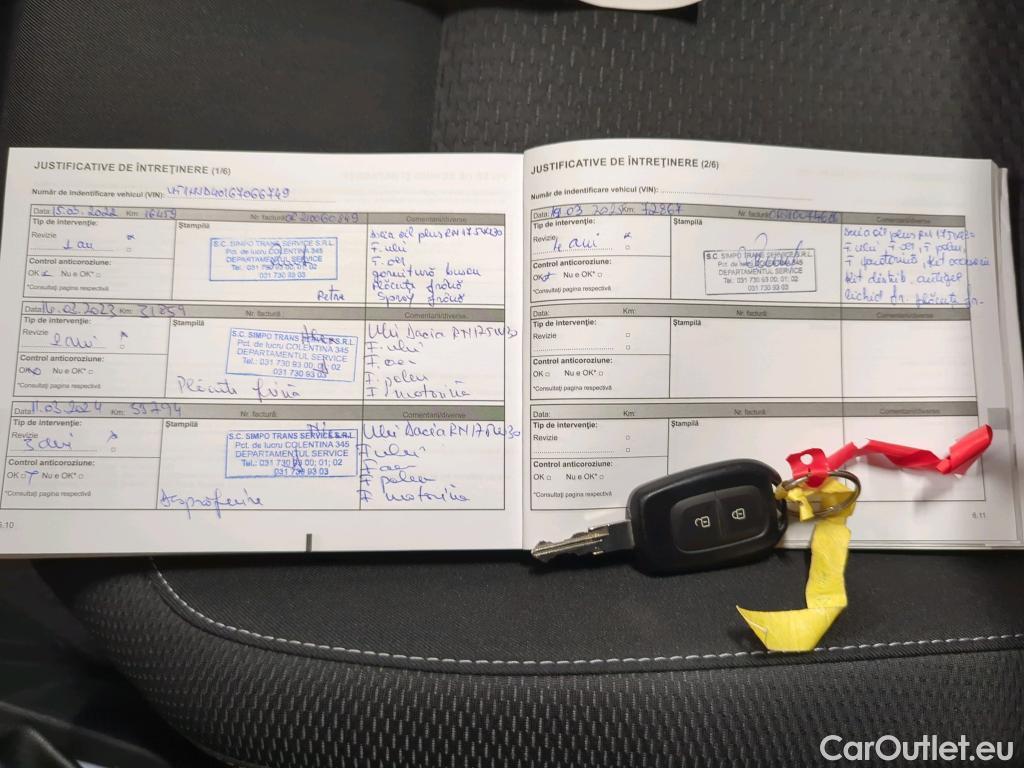 JUSTIFICATIVE DE ÎNTREȚINERE (1/6)
Număr de indentificare vehicul (VIN):
Data: 15.03.2022 Km: 16459 Nr. factură: Comentarii/diverse
Tip de intervenție: Ștampilă
Revizie
1 an
Control anticoroziune:
OK □ Nu e OK* □
*Consultați pagina respectivă
S.C. SIMPO TRANS SERVICE S.R.L.
Pct. de lucru COLENTINA 345
DEPARTAMENTUL SERVICE
Tel.: 031 730 93 00; 01; 02
031 730 93 03
F. ulei
F. aer
garnitură bușon
Plăcuțe frână
Spray frână
Data: 14.03.2023 Km: 31859 Nr. factură: Comentarii/diverse
Tip de intervenție: Ștampilă
Revizie
2 ani
Control anticoroziune:
OK Nu e OK* □
*Consultați pagina respectivă
S.C. SIMPO TRANS SERVICE S.R.L.
Pct. de lucru COLENTINA 345
DEPARTAMENTUL SERVICE
Tel.: 031 730 93 00; 01; 02
031 730 93 03
Plăcuțe frână
Ulei Dacia RN 175W30
F. ulei
F. aer
F. polen
F. motorină
Data: 11.03.2024 Km: 55794 Nr. factură: Comentarii/diverse
Tip de intervenție: Ștampilă
Revizie
3 ani
Control anticoroziune:
OK □ Nu e OK* □
*Consultați pagina respectivă
S.C. SIMPO TRANS SERVICE S.R.L.
Pct. de lucru COLENTINA 345
DEPARTAMENTUL SERVICE
Tel.: 031 730 93 00; 01; 02
031 730 93 03
Ulei Dacia RN 175W30
F ulei
F aer
F polen
F motorină
6.10
JUSTIFICATIVE DE ÎNTREȚINERE (2/6)
Număr de indentificare vehicul (VIN):
Data: 19.03.2025 Km: 72867 Nr. factură: Comentarii/diverse
Tip de intervenție: Ștampilă
Revizie
4 ani
Control anticoroziune:
OK Nu e OK* □
*Consultați pagina respectivă
S.C. SIMPO TRANS SERVICE S.R.L.
Pct. de lucru COLENTINA 345
DEPARTAMENTUL SERVICE
Tel.: 031 730 93 00; 01; 02
031 730 93 03
F ulei, F aer, F polen,
F motorină, kit accesorii
kit distrib, antigel
lichid fr. plăcuțe fr.
Data: Km: Nr. factură: Comentarii/diverse
Tip de intervenție: Ștampilă
Revizie □
Control anticoroziune:
OK □ Nu e OK* □
*Consultați pagina respectivă
Data: Km: Nr. factură: Comentarii/diverse
Tip de intervenție: Ștampilă
Revizie □
Control anticoroziune:
OK □ Nu e OK* □
*Consultați pagina respectivă
6.11
CarOutlet.eu